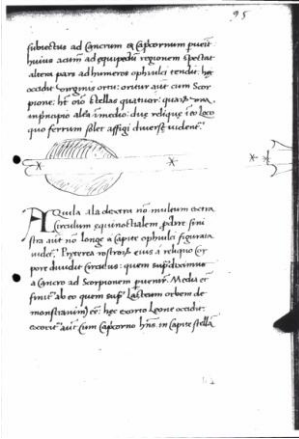 95
subiectus ad Cancrum et Capricornum pervenit
huius acumen ad equipedum regionem spectat
altera pars ad humeros ophiulci tendit: hec
occidit Virginis ortu: oritur aut cum Scor
pione: ht o͞io stellas quatuor: quarum una
in principio altera in medio: due relique in eo loco
quo ferrum solet affigi diverse videntr
Aquila ala dextra no͞ multum extra
circulum equinoctialem sini
stra aut no͞ longe a capite ophiulci figurata
videtr. Preterea rostrum eius a reliquo cor
pore dividit circulus: quem supra diximus
a Cancro ad Scorpionem pervenire. Media
finitr ab eo quem supra Lacteum orbem de
monstravimus: hec exorto Leone occidit:
exoritr aut cum Capricorno hns in capite stella͞